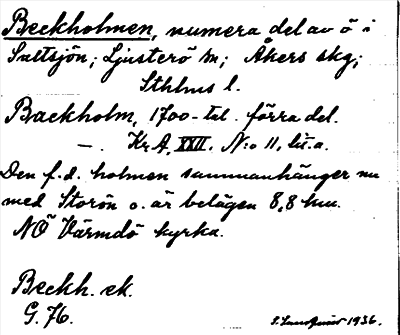 Beckholmen, numera del av ö i
Saltsjön; Ljusterö sn; Åkers skg;
Sthlms l.
Backholm, 1700-tal. förra del.
—. Kr.A. XXII. N:o 11, lit. a.
Den f.d. holmen sammanhänger nu
med Storön o. är belägen 8,8 km.
NÖ Värmdö kyrka.
Beckh. ek.
G. 76.
S. Lundqvist 1936.